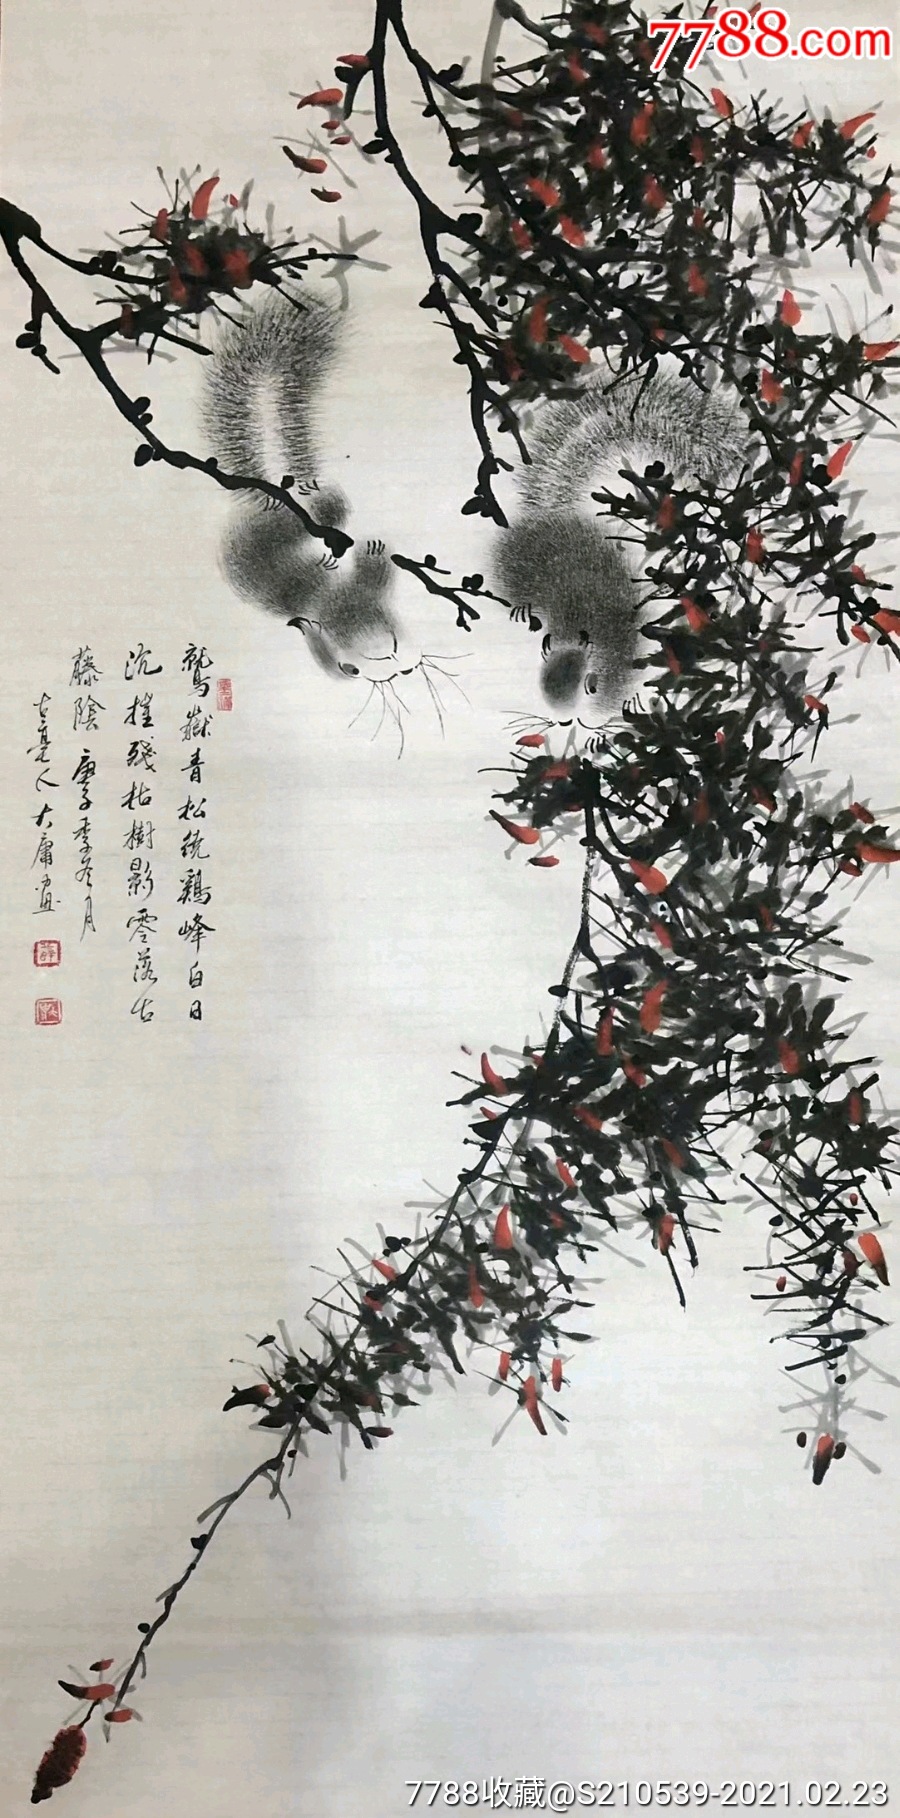 7788.com
鷲嶽青松繞鷄峰白日
沉摧殘枯樹影零落古
藤陰 庚子季冬月
古亳人大庸画
7788收藏@S210539-2021.02.23